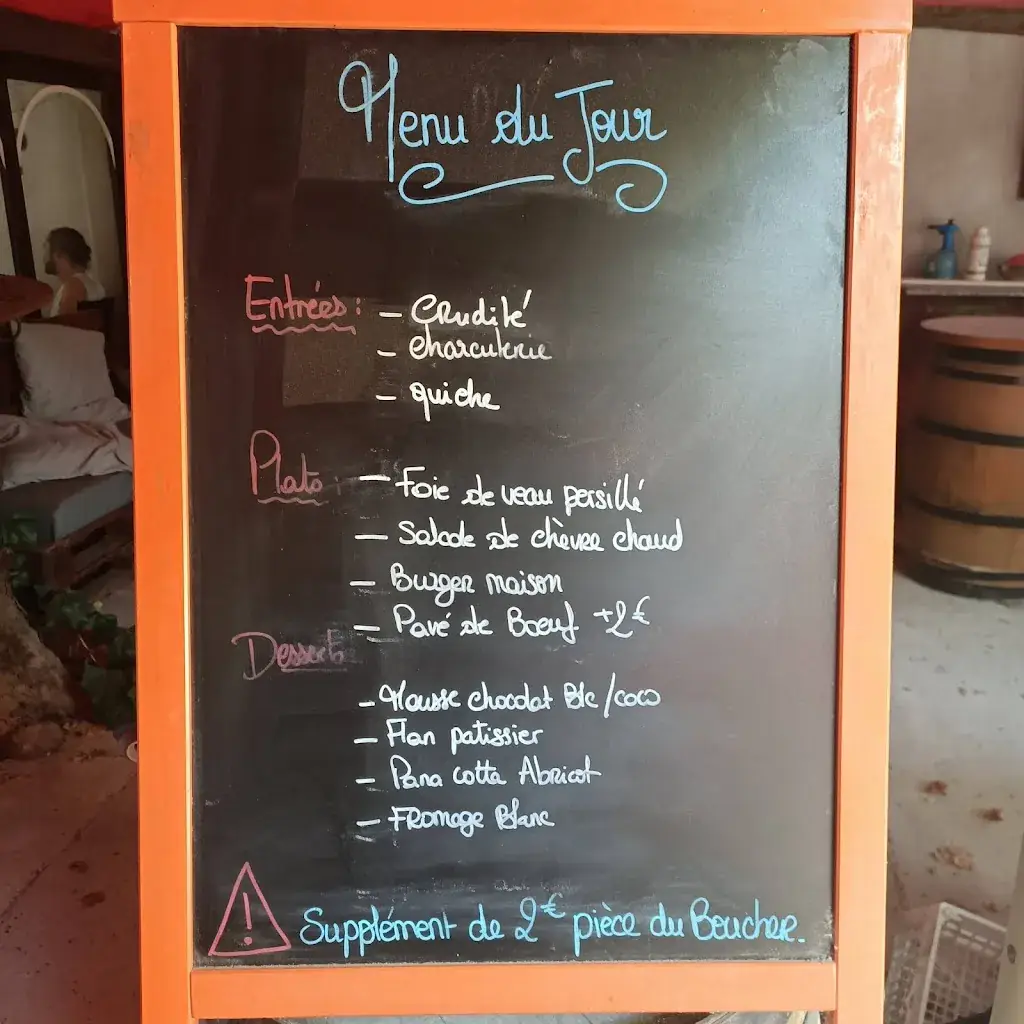 Menu du Jour
Entrées : - Crudité
- Charcuterie
- quiche
Plats - Foie de veau persillé
- Salade de chèvre chaud
- Burger maison
- Pavé de Boeuf +2€
Desserts
- Mousse chocolat Blc/coco
- Flan patissier
- Pana cotta Abricot
- Fromage Blanc
! Supplément de 2€ pièce du Boucher.